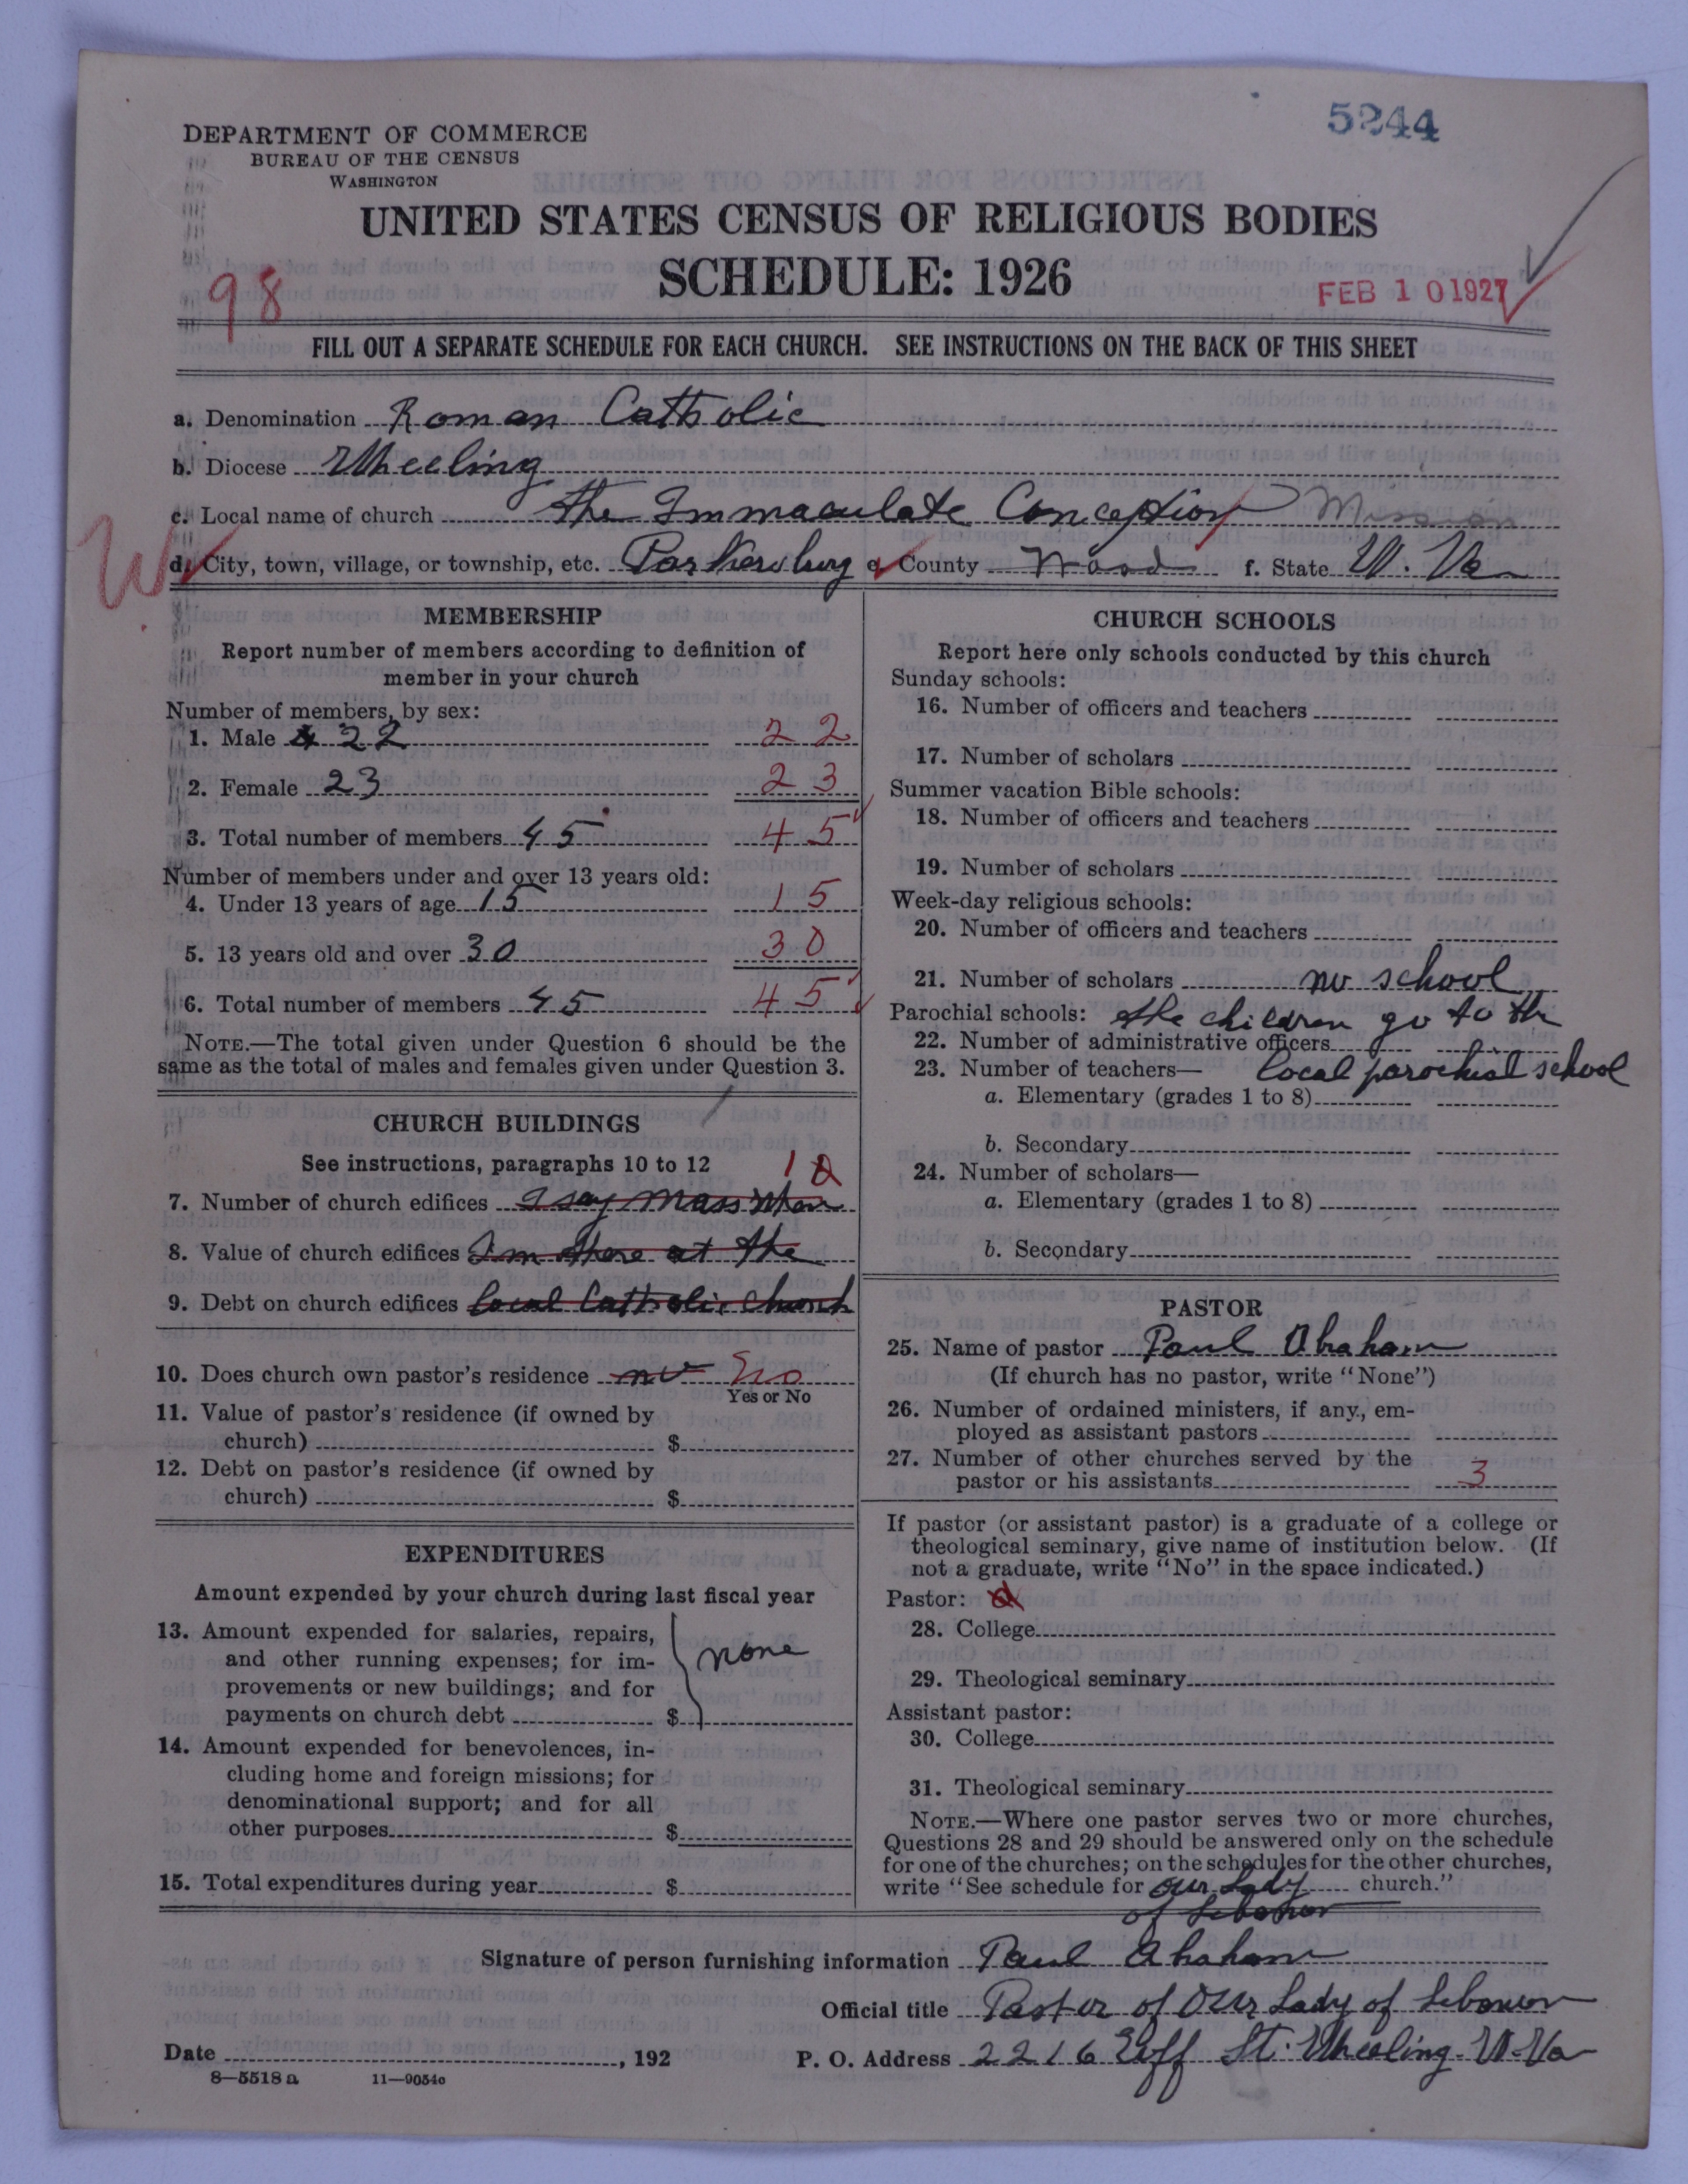 5244
DEPARTMENT OF COMMERCE
BUREAU OF THE CENSUS
WASHINGTON
UNITED STATES CENSUS OF RELIGIOUS BODIES
SCHEDULE: 1926
98
FEB 10 1927
FILL OUT A SEPARATE SCHEDULE FOR EACH CHURCH. SEE INSTRUCTIONS ON THE BACK OF THIS SHEET
a. Denomination Roman Catholic
b. Diocese Wheeling
c. Local name of church The Immaculate Conception Mission
W
d. City, town, village, or township, etc. Parkersburg e. County Wood f. State W. Va
MEMBERSHIP
Report number of members according to definition of
member in your church
Number of members, by sex:
1. Male 22 22
2. Female 23 23
3. Total number of members 45 45
Number of members under and over 13 years old:
4. Under 13 years of age 15 15
5. 13 years old and over 30 30
6. Total number of members 45 45
NOTE.—The total given under Question 6 should be the
same as the total of males and females given under Question 3.
CHURCH BUILDINGS
See instructions, paragraphs 10 to 12
1
7. Number of church edifices I say Mass when
8. Value of church edifices I'm there at the
9. Debt on church edifices local Catholic Church
10. Does church own pastor's residence no No
Yes or No
11. Value of pastor's residence (if owned by
church) $
12. Debt on pastor's residence (if owned by
church) $
EXPENDITURES
Amount expended by your church during last fiscal year
13. Amount expended for salaries, repairs,
and other running expenses; for im-
provements or new buildings; and for
payments on church debt $ none
14. Amount expended for benevolences, in-
cluding home and foreign missions; for
denominational support; and for all
other purposes $
15. Total expenditures during year $
CHURCH SCHOOLS
Report here only schools conducted by this church
Sunday schools:
16. Number of officers and teachers
17. Number of scholars
Summer vacation Bible schools:
18. Number of officers and teachers
19. Number of scholars
Week-day religious schools:
20. Number of officers and teachers
21. Number of scholars no school
Parochial schools: the children go to the
22. Number of administrative officers
23. Number of teachers— local parochial school
a. Elementary (grades 1 to 8)
b. Secondary
24. Number of scholars—
a. Elementary (grades 1 to 8)
b. Secondary
PASTOR
25. Name of pastor Paul Abraham
(If church has no pastor, write "None")
26. Number of ordained ministers, if any, em-
ployed as assistant pastors
27. Number of other churches served by the
pastor or his assistants 3
If pastor (or assistant pastor) is a graduate of a college or
theological seminary, give name of institution below. (If
not a graduate, write "No" in the space indicated.)
Pastor:
28. College
29. Theological seminary
Assistant pastor:
30. College
31. Theological seminary
NOTE.—Where one pastor serves two or more churches,
Questions 28 and 29 should be answered only on the schedule
for one of the churches; on the schedules for the other churches,
write "See schedule for Our Lady church."
of Lebanon
Signature of person furnishing information Paul Abraham
Official title Pastor of Our Lady of Lebanon
Date , 192
P. O. Address 2216 Eoff St. Wheeling. W. Va
8—5518 a 11—9054c